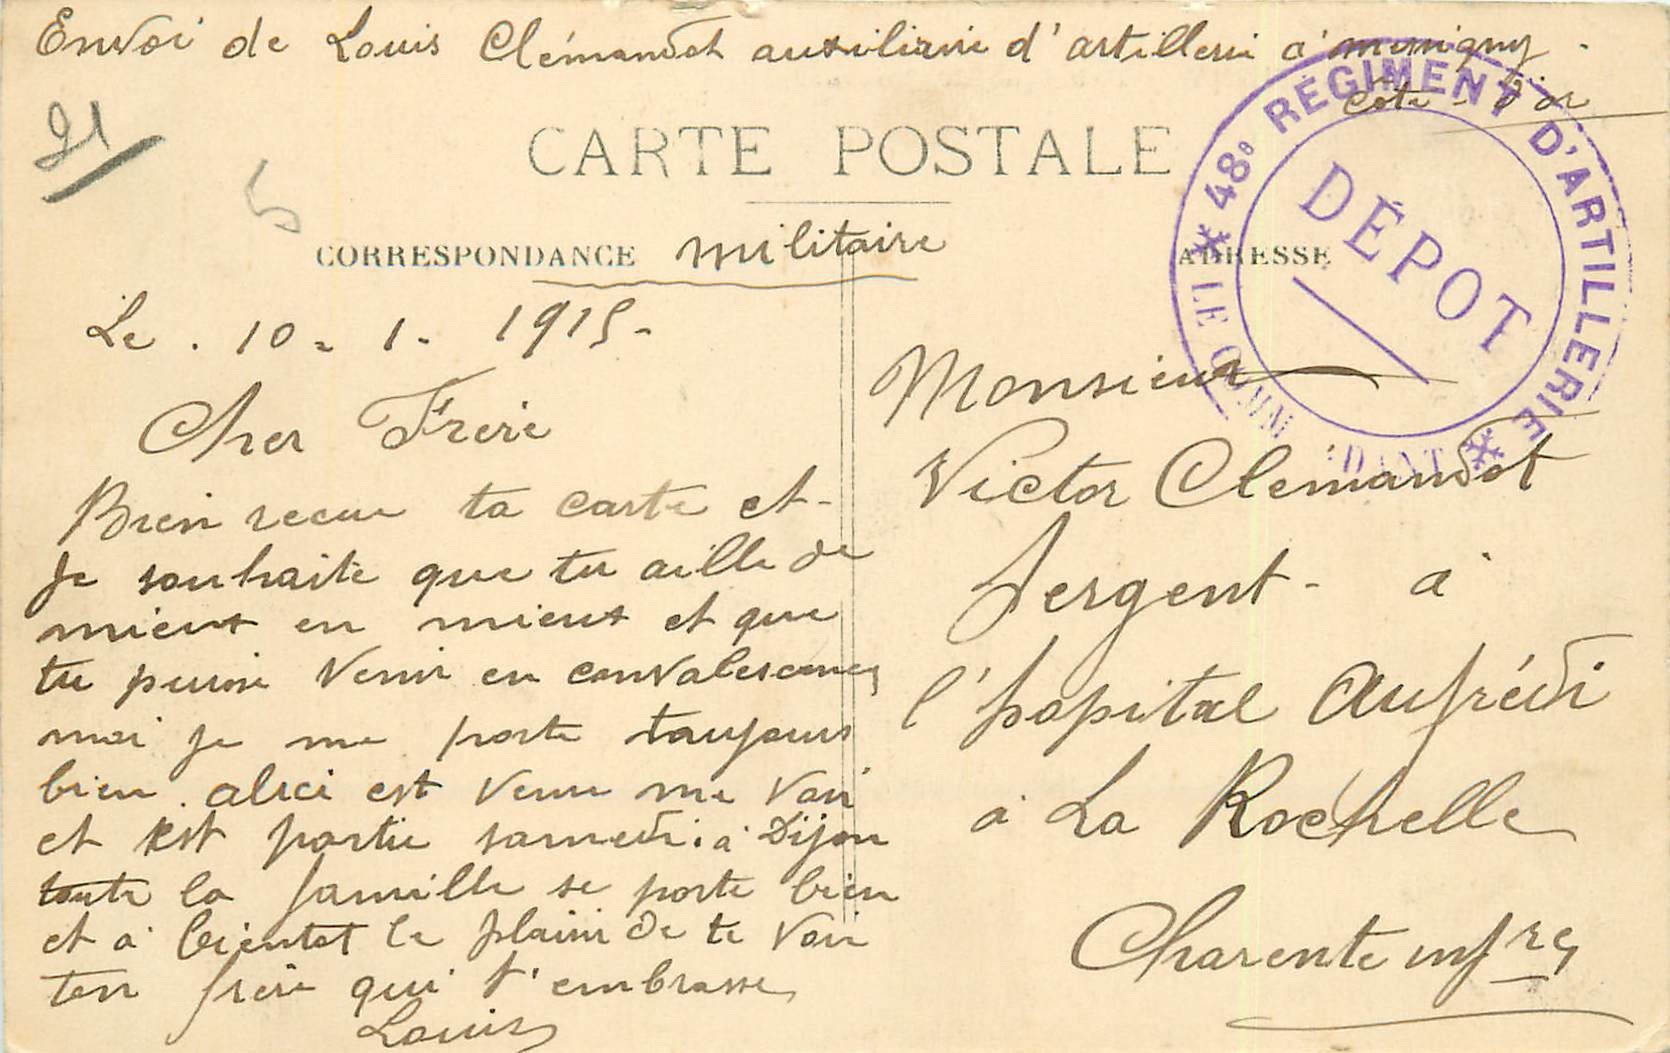 Envoi de Louis Clémandot auxiliaire d'artillerie à
Côte-d'or
21
5
CARTE POSTALE
CORRESPONDANCE militaire
ADRESSE
48e RÉGIMENT D'ARTILLERIE
DÉPOT
LE COMM DANT
Le . 10 - 1 - 1915 -
Cher Frère
Bien recue ta carte et -
je souhaite que tu aille de
mieux en mieux et que
tu puisse venir en convalescence
moi je me porte toujours
bien . alici est venue me voir
et est partie samedi à Dijon
toute la famille se porte bien
et a bientot le plaisir de te voir
ton frère qui t'embrasse
Louis
Monsieur
Victor Clemandot
Sergent - à
l'hopital Aufrédi
à La Rochelle
Charente infre